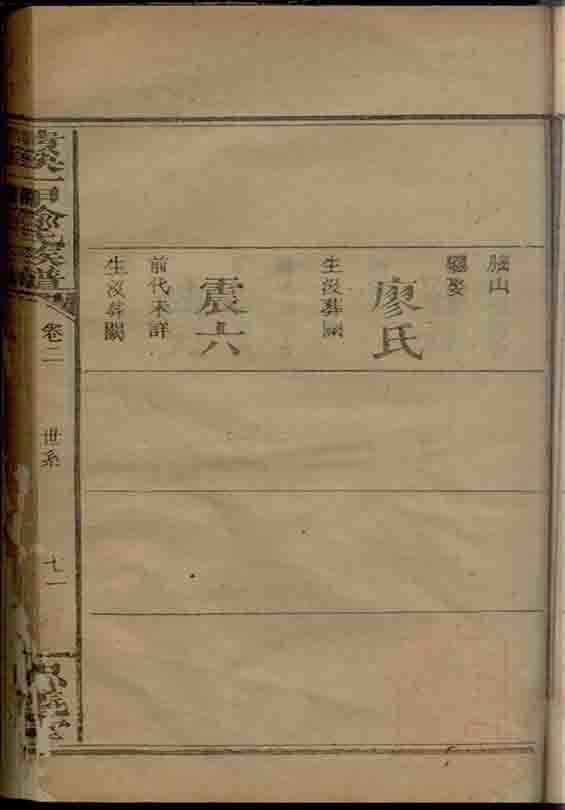 山
繼娶
廖氏
生沒葬闕
震六
前代未詳
生沒葬闕
族譜
卷二
世系
七一